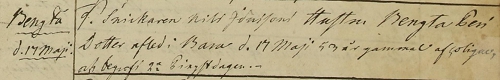 Bengta
d. 17 Maji.
S. Snickaren Nils Jönssons Hustru Bengta Pers
Dotter afled i Bara d. 17 Maji 53 år gammal af
och begrofs 2a Pingstdagen.